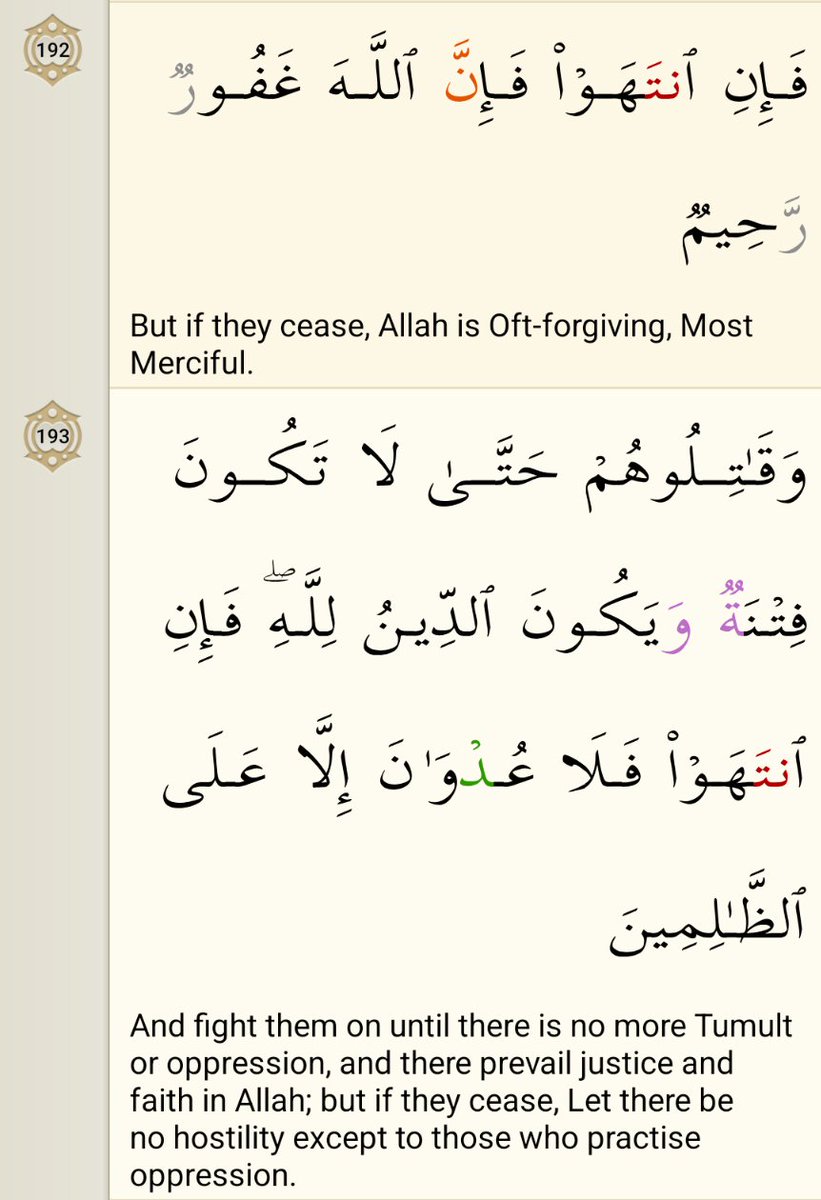 192
فَإِنِ ٱنتَهَوْا۟ فَإِنَّ ٱللَّهَ غَفُورٌۭ
رَّحِيمٌۭ
But if they cease, Allah is Oft-forgiving, Most
Merciful.
193
وَقَـٰتِلُوهُمْ حَتَّىٰ لَا تَكُونَ
فِتْنَةٌۭ وَيَكُونَ ٱلدِّينُ لِلَّهِ ۖ فَإِنِ
ٱنتَهَوْا۟ فَلَا عُدْوَٰنَ إِلَّا عَلَى
ٱلظَّـٰلِمِينَ
And fight them on until there is no more Tumult
or oppression, and there prevail justice and
faith in Allah; but if they cease, Let there be
no hostility except to those who practise
oppression.